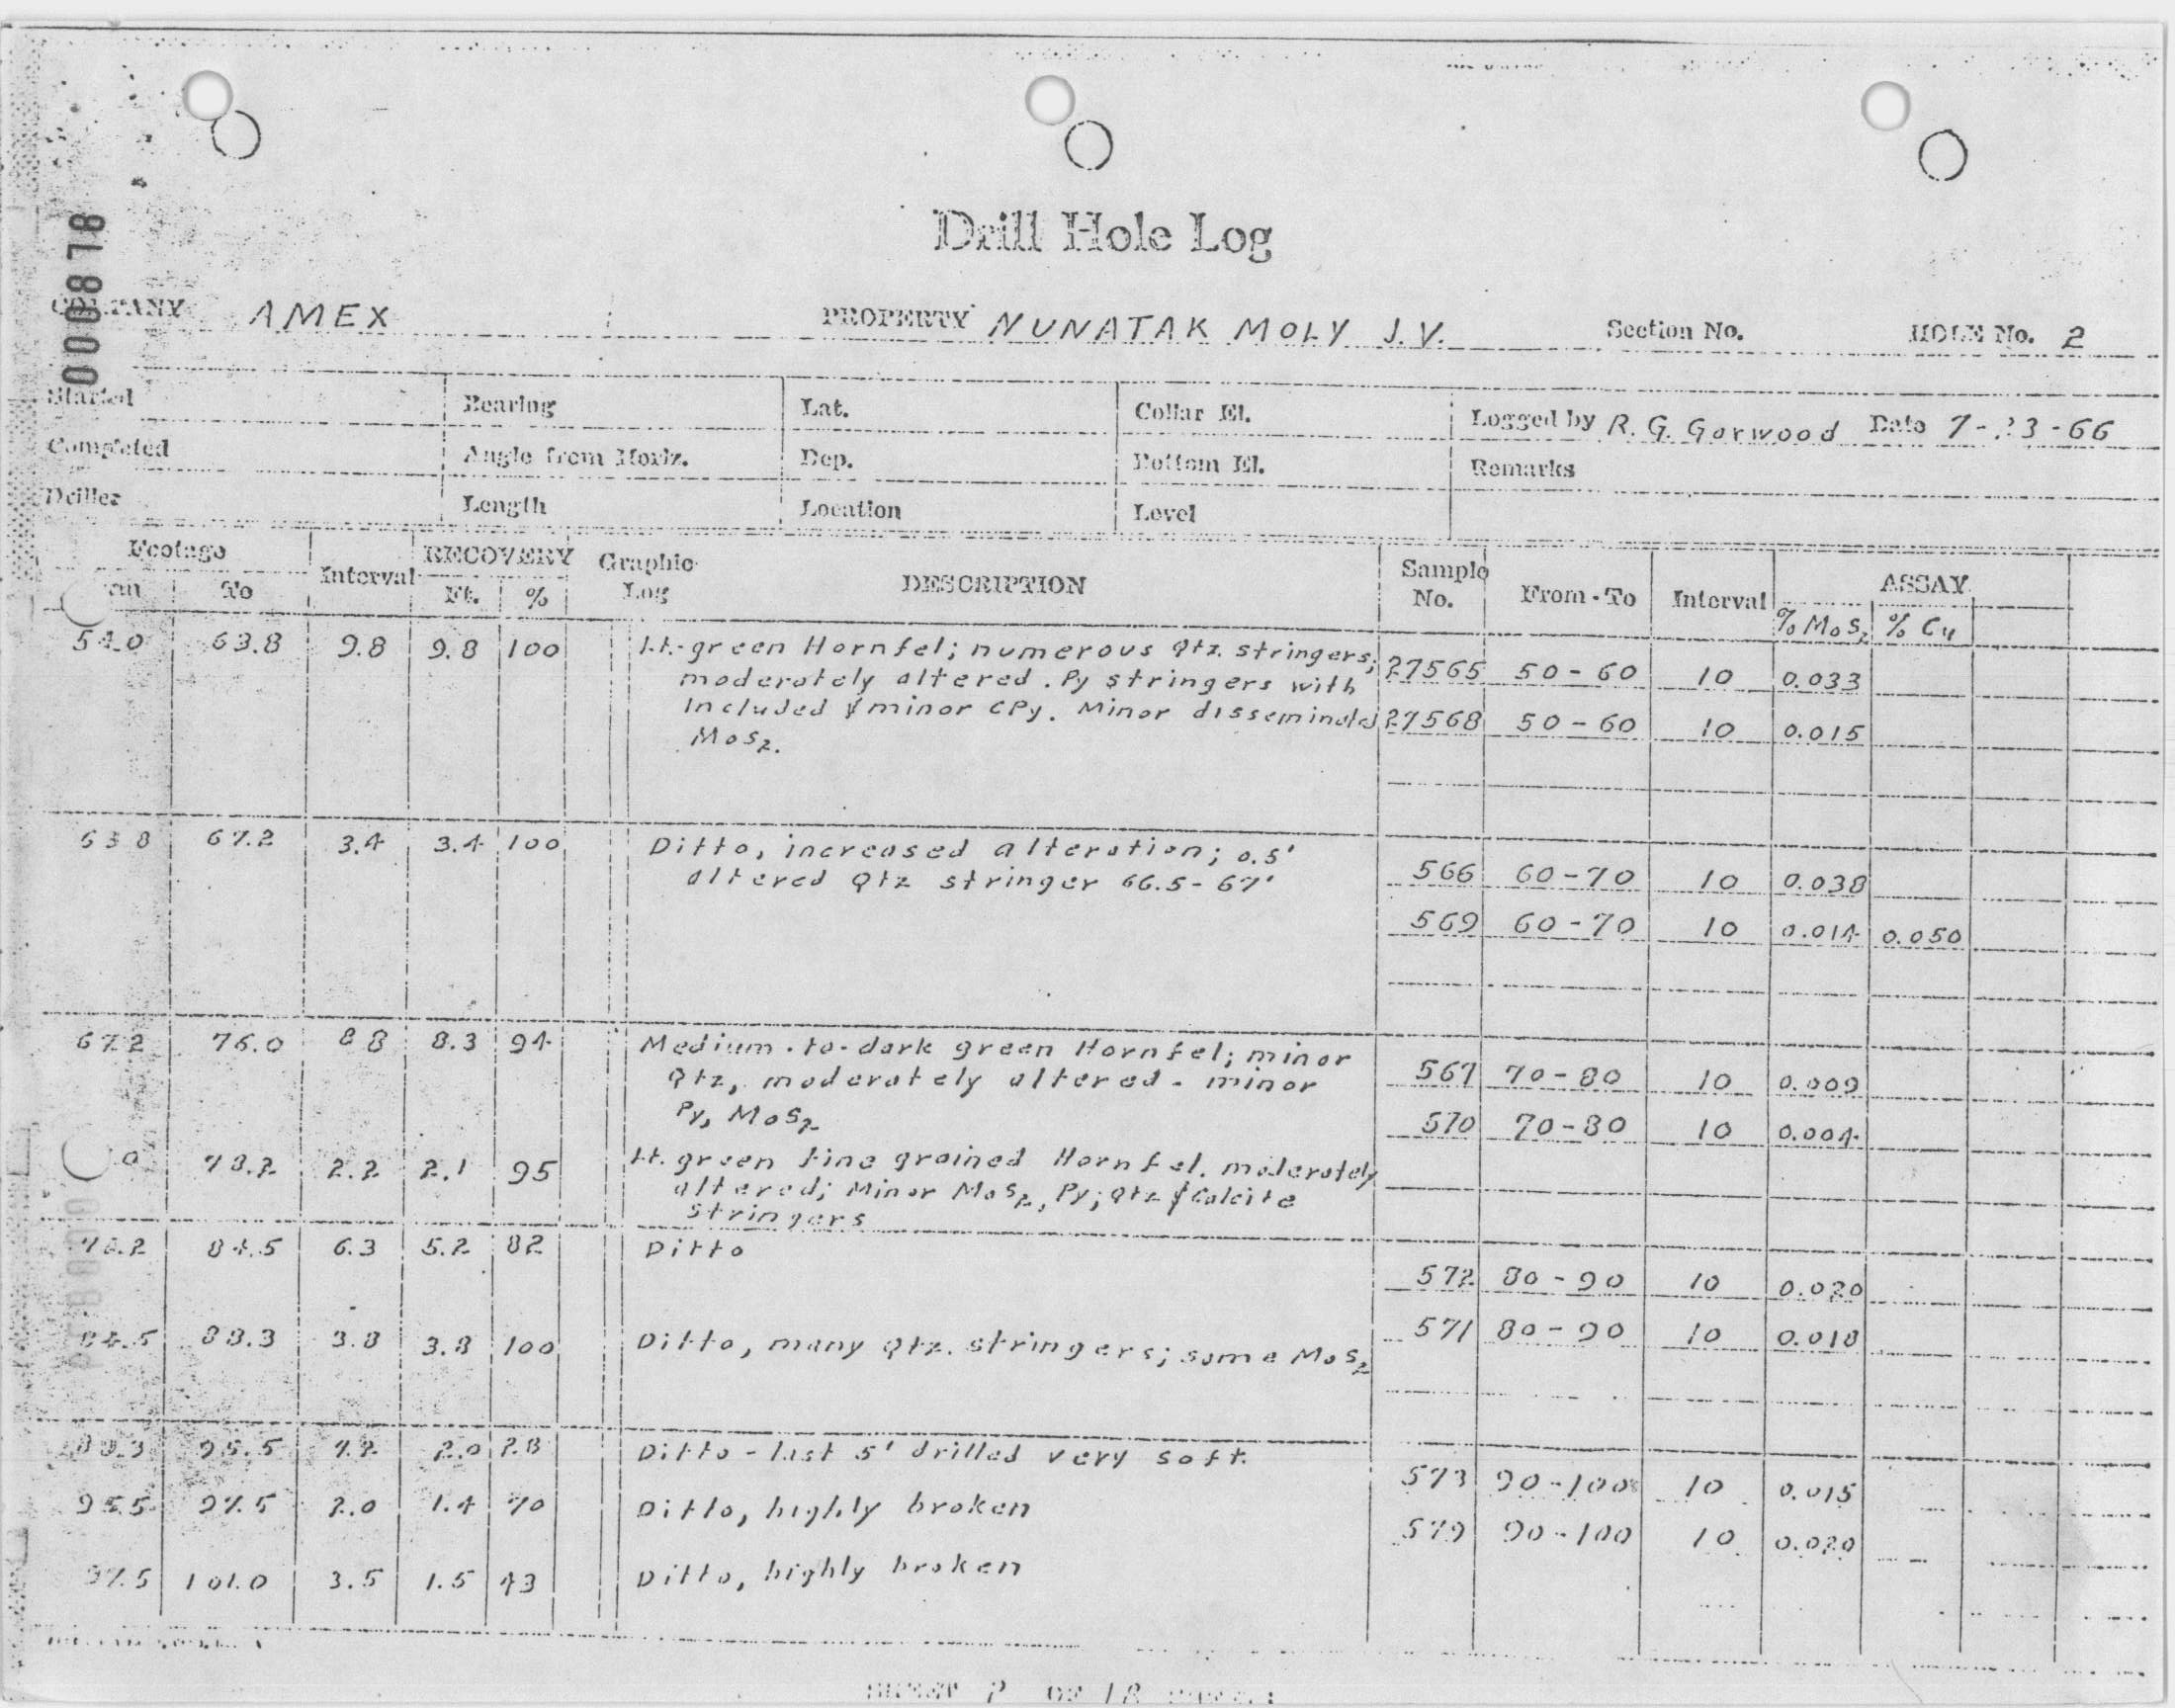 Drill Hole Log
000878
COMPANY AMEX PROPERTY NUNATAK MOLY J.V. Section No. HOLE No. 2
Started Bearing Lat. Collar El. Logged by R. G. Garwood Date 7- 3-66
Completed Angle from Horiz. Dep. Bottom El. Remarks
Driller Length Location Level
Footage Interval RECOVERY Graphic Log DESCRIPTION Sample No. From-To Interval ASSAY
To Ft. % % MoS2 % Cu
54.0 63.8 9.8 9.8 100 Lt.-green Hornfel; numerous Qtz. stringers; 27565 50-60 10 0.033
moderately altered. Py stringers with
Included & minor CPy. Minor disseminated 27568 50-60 10 0.015
MoS2.
63.8 67.2 3.4 3.4 100 Ditto, increased alteration; 0.5'
altered Qtz stringer 66.5-67' 566 60-70 10 0.038
569 60-70 10 0.014 0.050
67.2 76.0 8.8 8.3 94 Medium-to-dark green Hornfel; minor
Qtz, moderately altered - minor 567 70-80 10 0.009
Py, MoS2 570 70-80 10 0.004
0 78.2 2.2 2.1 95 Lt. green fine grained Hornfel. moderately
altered; Minor MoS2, Py; Qtz & Calcite
stringers
78.2 84.5 6.3 5.2 82 Ditto
572 80-90 10 0.020
84.5 88.3 3.8 3.8 100 Ditto, many Qtz. stringers; some MoS2 571 80-90 10 0.018
88.3 95.5 7.2 2.0 28 Ditto - last 5' drilled very soft.
573 90-100 10 0.015
95.5 97.5 2.0 1.4 70 Ditto, highly broken
579 90-100 10 0.020
97.5 101.0 3.5 1.5 43 Ditto, highly broken
SHEET 2 OF 18